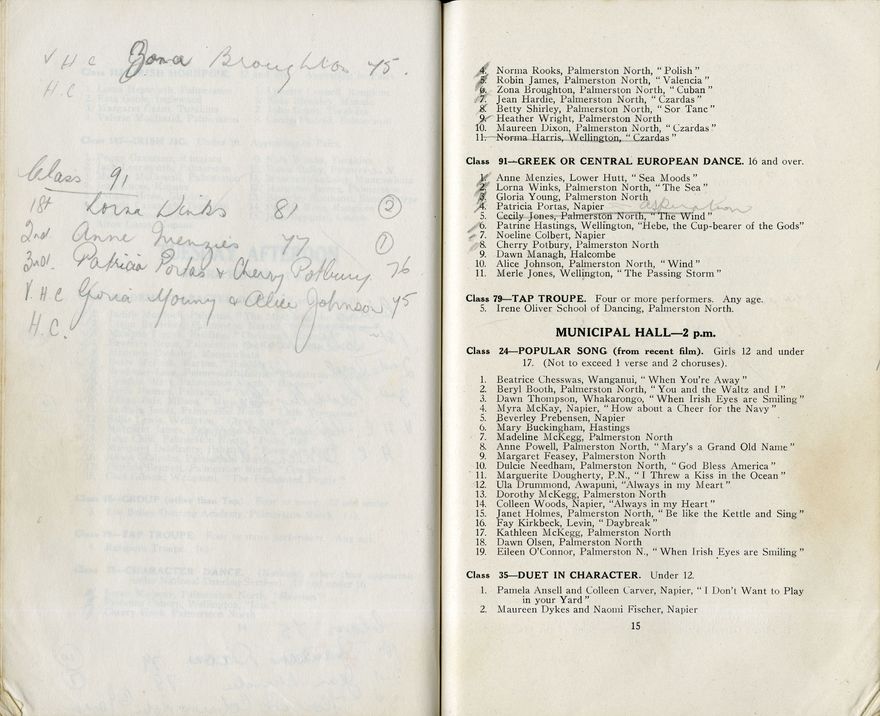 V H C Zona Broughton 75.
H.C.
Class 91
1st Lorna Winks 81 ②
2nd Anne Menzies 77 ①
3rd. Patricia Portas & Cherry Potbury 76
V.H.C Gloria Young & Alice Johnson 75
H.C.
4. Norma Rooks, Palmerston North, " Polish "
5. Robin James, Palmerston North, " Valencia "
6. Zona Broughton, Palmerston North, " Cuban "
7. Jean Hardie, Palmerston North, " Czardas "
8. Betty Shirley, Palmerston North, " Sor Tanc "
9. Heather Wright, Palmerston North
10. Maureen Dixon, Palmerston North, " Czardas "
11. Norma Harris, Wellington, " Czardas "
Class 91—GREEK OR CENTRAL EUROPEAN DANCE. 16 and over.
1. Anne Menzies, Lower Hutt, " Sea Moods "
2. Lorna Winks, Palmerston North, " The Sea "
3. Gloria Young, Palmerston North
4. Patricia Portas, Napier — aspiration
5. Cecily Jones, Palmerston North, "The Wind"
6. Patrine Hastings, Wellington, "Hebe, the Cup-bearer of the Gods"
7. Noeline Colbert, Napier
8. Cherry Potbury, Palmerston North
9. Dawn Managh, Halcombe
10. Alice Johnson, Palmerston North, " Wind "
11. Merle Jones, Wellington, " The Passing Storm "
Class 79—TAP TROUPE. Four or more performers. Any age.
5. Irene Oliver School of Dancing, Palmerston North.
MUNICIPAL HALL—2 p.m.
Class 24—POPULAR SONG (from recent film). Girls 12 and under
17. (Not to exceed 1 verse and 2 choruses).
1. Beatrice Chesswas, Wanganui, " When You're Away "
2. Beryl Booth, Palmerston North, " You and the Waltz and I "
3. Dawn Thompson, Whakarongo, " When Irish Eyes are Smiling "
4. Myra McKay, Napier, " How about a Cheer for the Navy "
5. Beverley Prebensen, Napier
6. Mary Buckingham, Hastings
7. Madeline McKegg, Palmerston North
8. Anne Powell, Palmerston North, " Mary's a Grand Old Name "
9. Margaret Feasey, Palmerston North
10. Dulcie Needham, Palmerston North, " God Bless America "
11. Marguerite Dougherty, P.N., " I Threw a Kiss in the Ocean "
12. Ula Drummond, Awapuni, "Always in my Meart "
13. Dorothy McKegg, Palmerston North
14. Colleen Woods, Napier, "Always in my Heart "
15. Janet Holmes, Palmerston North, " Be like the Kettle and Sing "
16. Fay Kirkbeck, Levin, " Daybreak "
17. Kathleen McKegg, Palmerston North
18. Dawn Olsen, Palmerston North
19. Eileen O'Connor, Palmerston N., " When Irish Eyes are Smiling "
Class 35—DUET IN CHARACTER. Under 12.
1. Pamela Ansell and Colleen Carver, Napier, " I Don't Want to Play
in your Yard "
2. Maureen Dykes and Naomi Fischer, Napier
15